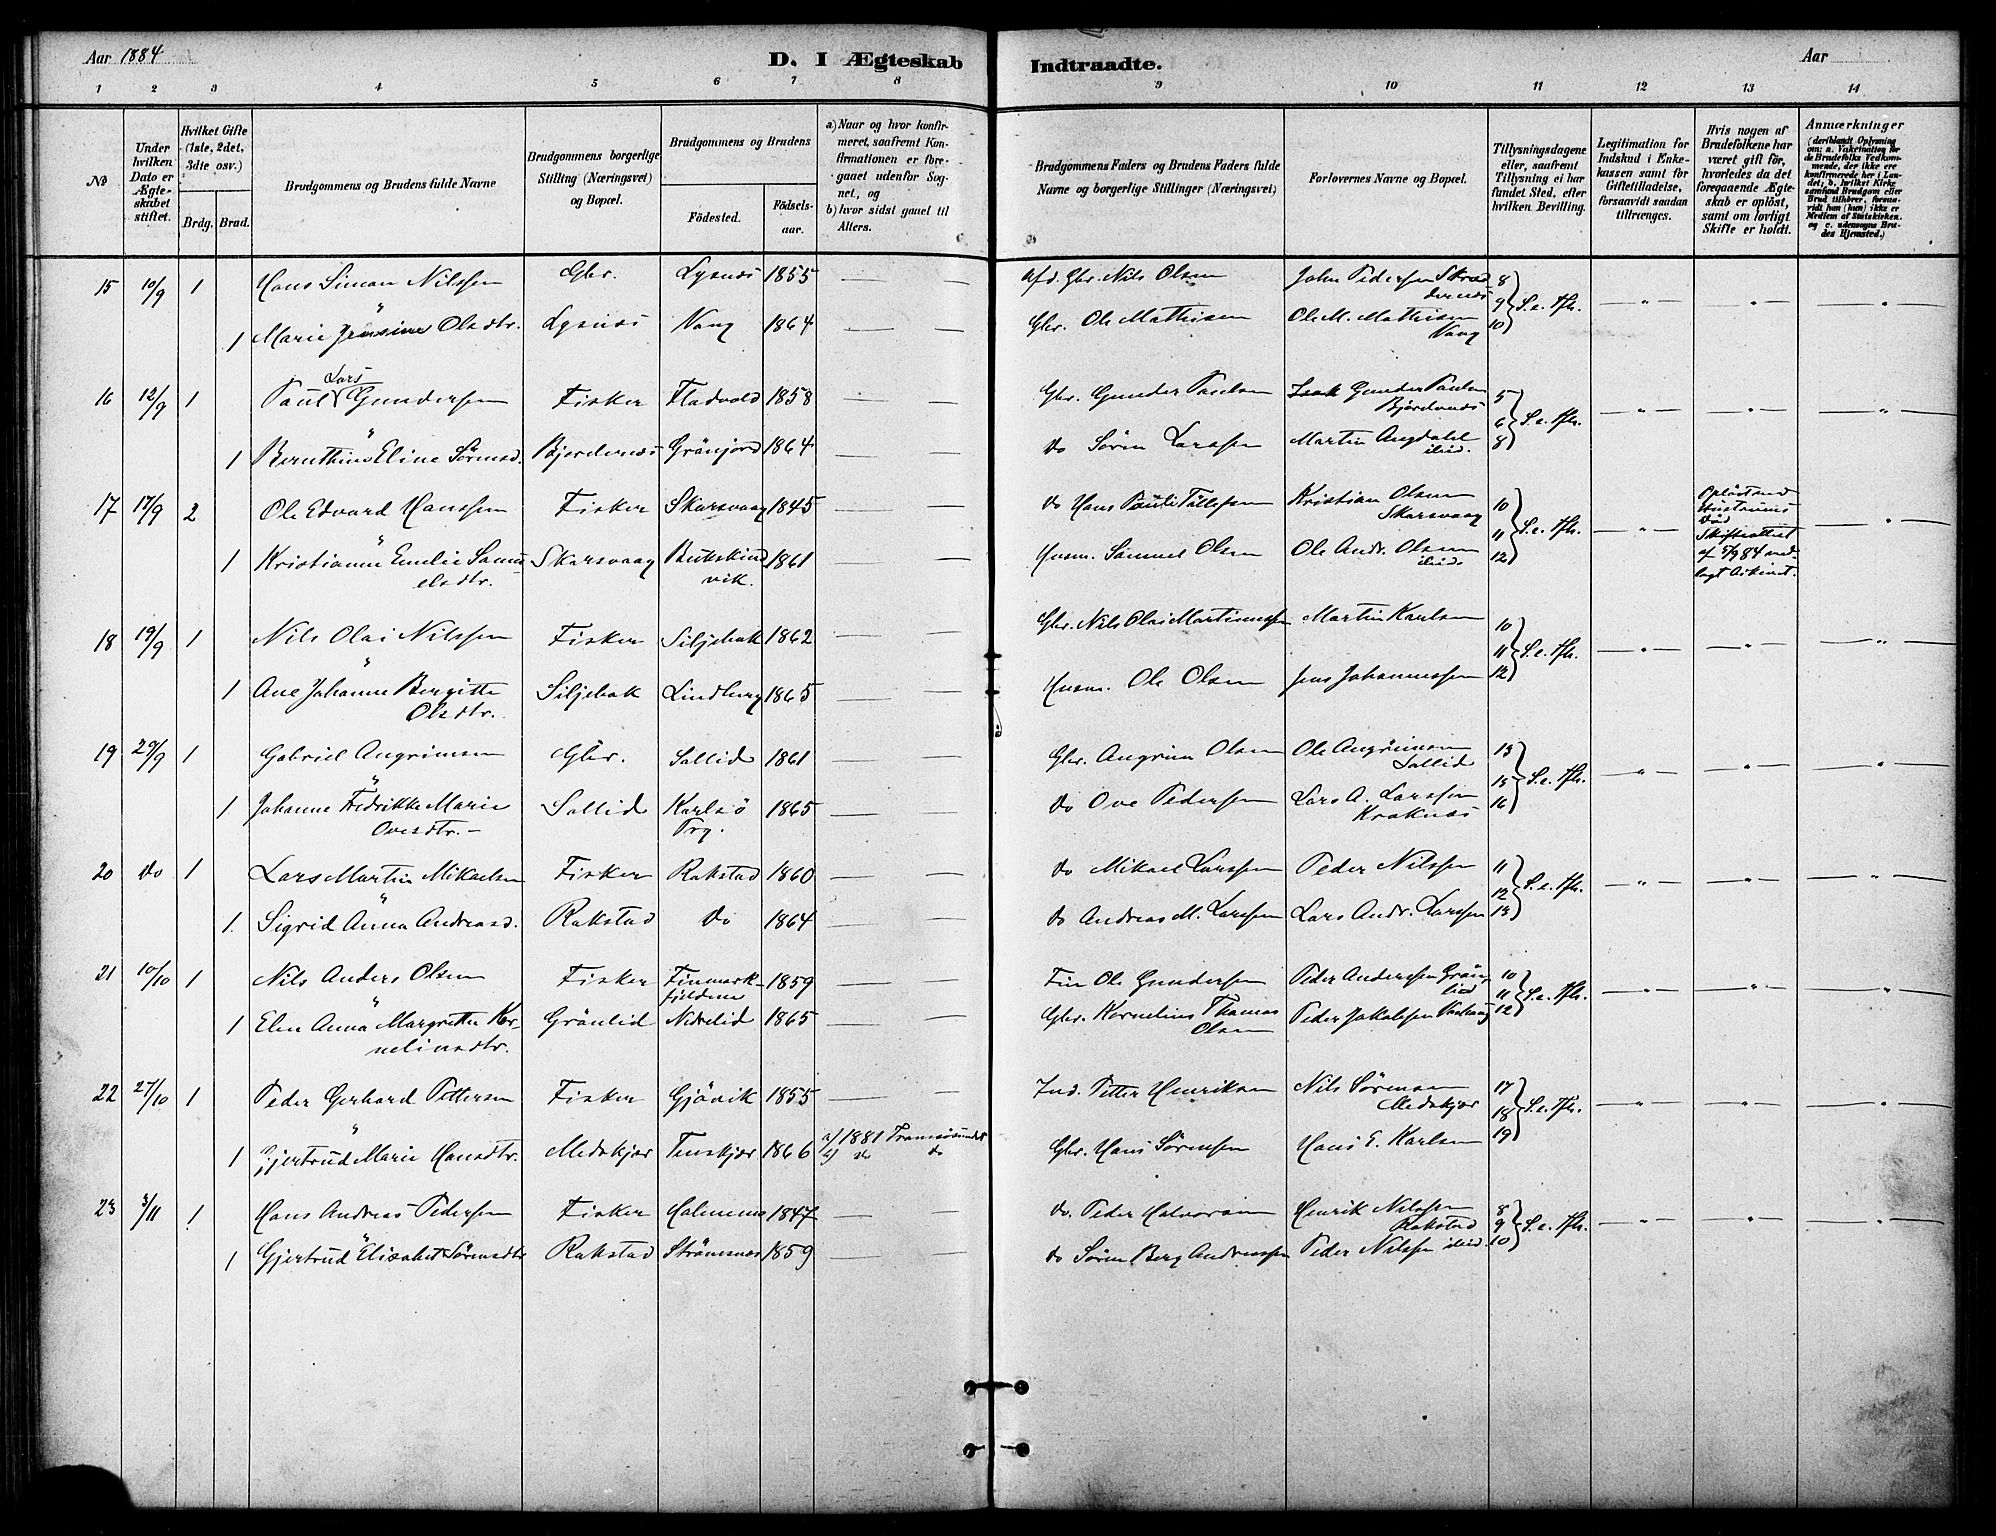 Aar 1884
D. I Ægteskab Indtraadte.
Aar
1 2 3 4 5 6 7 8 9 10 11 12 13 14
No
Under hvilken Dato er Ægteskabet stiftet.
Hvilket Gifte (1ste, 2det, 3die osv.)
Brdg. Brud.
Brudgommens og Brudens fulde Navne
Brudgommens borgerlige Stilling (Næringsvei) og Bopæl.
Brudgommens og Brudens
Födested.
Födselsaar.
a) Naar og hvor konfirmeret, saafremt Konfirmationen er foregaaet udenfor Sognet, og
b) hvor sidst gaaet til Alters.
Brudgommens Faders og Brudens Faders fulde Navne og borgerlige Stillinger (Næringsvei)
Forlovernes Navne og Bopæl.
Tillysningsdagene eller, saafremt Tillysning ei har fundet Sted, efter hvilken Bevilling.
Legitimation for Indskud i Enkekassen samt for Giftetilladelse, forsaavidt saadan tiltrænges.
Hvis nogen af Brudefolkene har været gift för, hvorledes da det foregaaende Ægteskab er oplöst, samt om lovligt Skifte er holdt.
Anmærkninger (deriblandt Oplysning om: a. Vakcination for de Brudefolks Vedkommende, der ikke ere konfirmerede her i Landet; b. hvilket Kirkesamfund Brudgom eller Brud tilhörer, forsaavidt han (hun) ikke er Medlem af Statskirken, og c. udensogns Brudes Hjemsted.)
15 10/9 1 Hans Simon Nilssen Gbr. Lysnes 1855 — — Afd. Gbr. Nils Olsen John Pedersen 8
1 Marie Jensine Olsdtr. Lysnes Vang 1864 — — Gbr. Ole Mathisen Ole M. Mathisen 9 S.e.Tfk.
Vang 10
Lars
16 12/9 1 Paul Gundersen Fisker Fladvold 1858 — — Gbr. Gunder Paulsen Isak Gunder Paulsen 5
Bjordnes 6 S.e.Tfk.
1 Eline Sørensd. Bjordernes Grönjord 1864 — — Do Søren Larssen Martin Angdahl 8
ibid.
17 17/9 2 Ole Edvard Hanssen Fisker Skarsvaag 1845 — — Do Hans Pauli Tollefsen Kristian Olsen 10 Oplöst ved Hustruens Död
Skarsvaag 11 S.e.Tfk. Skifteattest af 5/9 84 nedlagt Arkivet.
1 Kristianne Emelie Samuelsdtr. Skarsvaag Bukskindvik. 1861 — — Husm. Samuel Olsen Ole Andr. Olsen 12
ibid.
18 19/9 1 Nils Olai Nilssen Fisker Siljebak 1862 — — Gbr. Nils Olai Martinussen Martin Karlsen 10
11 S.e.Tfk.
1 Ane Johanne Bergitte Olsdtr. Siljebak Lindberg 1865 — — Husm. Ole Olsen Jens Johannessen 12
19 29/9 1 Gabriel Angrimsen Gbr. Sallid 1861 — — Gbr. Angrim Olsen Ole Angrimsen 13
Sollid 15 S.e.Tfk.
1 Johanne Fredrikke Marie Ovesdtr. Sollid Karlsö Prg. 1865 — — Do Ove Pedersen Lars A. Larssen 16
Kraknes
20 Do 1 Lars Martin Mikaelsen Fisker Rakstad 1860 — — Do Mikael Larssen Peder Nilssen 11
12 S.e.Tfk.
1 Sigrid Anna Andreasd. Rakstad Do 1864 — — Do Andreas M. Larssen Lars Andr. Larssen 13
21 10/10 1 Nils Anders Olsen Fisker Finmarkfjeldene 1859 — — Fin Ole Gundersen Peder Anderssen Grönlid 10
11 S.e.Tfk.
1 Elen Anna Margrethe Kornelinsdtr. Grönlid Nedrelid 1865 — — Gbr. Kornelius Thomas Olsen Peder Jakobsen 12
22 27/10 1 Peder Gerhard Pettersen Fisker Gjövik 1855 — — Ind. Petter Henriksen Nils Sørensen 17
Medskjær 18 S.e.Tfk.
1 Gjertrud Marie Hansdtr. Medskjær Finskjær 1866 a) 1881 Tromsøsundet Gbr. Hans Sørensen Hans E. Karlsen 19
b) do do
23 3/11 1 Hans Andreas Pedersen Fisker 1847 — — Do. Peder Halvorsen Henrik Nilssen 8
Rakstad 9 S.e.Tfk.
1 Gjertrud Elisabet Sørensdtr Rakstad Strömsnes 1859 — — Do Søren Berg Andreassen Peder Nilssen ibid. 10